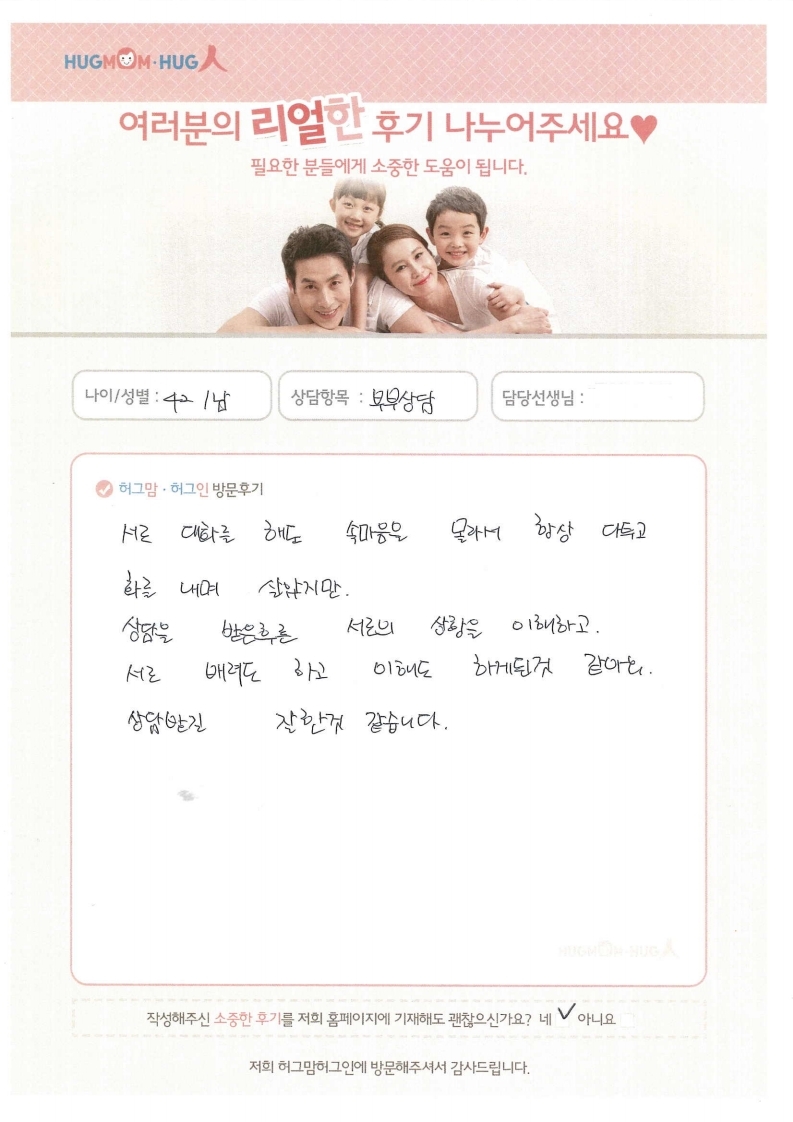 HUGMOM·HUG人
여러분의 리얼한 후기 나누어주세요♥
필요한 분들에게 소중한 도움이 됩니다.
나이/성별 : 42 / 남
상담항목 : 부부상담
담당선생님 :
허그맘·허그인 방문후기
서로 대화를 해도 속마음을 몰라서 항상 다투고
화를 내며 살았지만.
상담을 받은후론 서로의 상황을 이해하고.
서로 배려도 하고 이해도 하게된것 같아요.
상담받길 잘한것 같습니다.
HUGMOM·HUG人
작성해주신 소중한 후기를 저희 홈페이지에 기재해도 괜찮으신가요? 네 ✓ 아니요
저희 허그맘허그인에 방문해주셔서 감사드립니다.